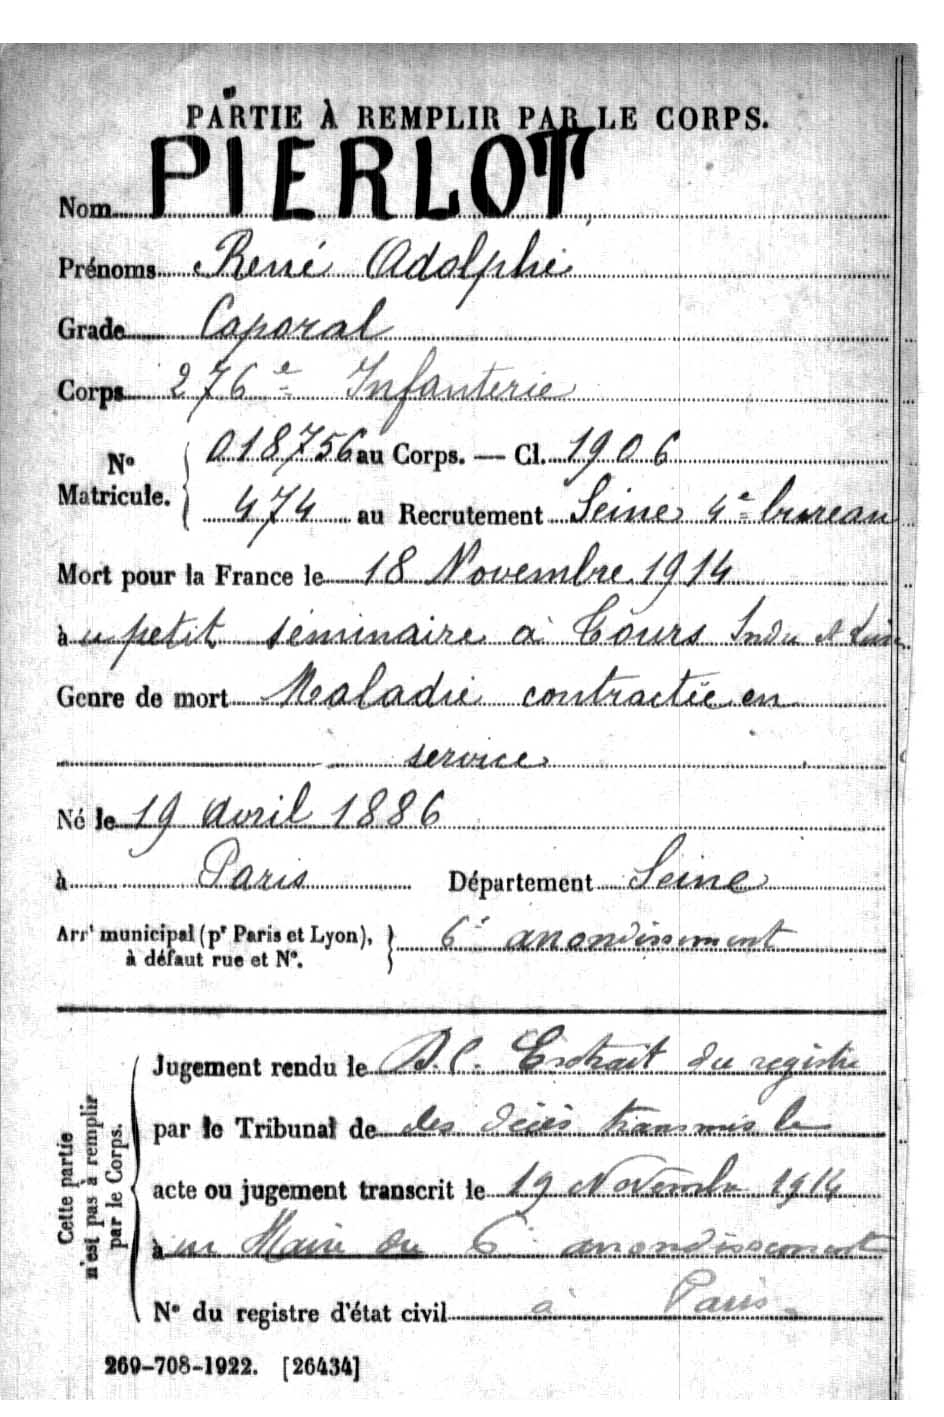 PARTIE À REMPLIR PAR LE CORPS.
Nom PIERLOT
Prénoms René Adolphe
Grade Caporal
Corps 276e Infanterie
No Matricule. 018756 au Corps. — Cl. 1906
474 au Recrutement Seine 4e bureau
Mort pour la France le 18 Novembre 1914
à petit séminaire à Tours Indre et Loire
Genre de mort Maladie contractée en
service
Né le 19 Avril 1886
à Paris Département Seine
Arrt municipal (pr Paris et Lyon), à défaut rue et No. 6e arrondissement
Cette partie n'est pas à remplir par le Corps.
Jugement rendu le Extrait du registre
par le Tribunal de des décès transmis le
acte ou jugement transcrit le 19 Novembre 1914
à au Maire du 6e arrondissement
No du registre d'état civil à Paris
269-708-1922. [26434]